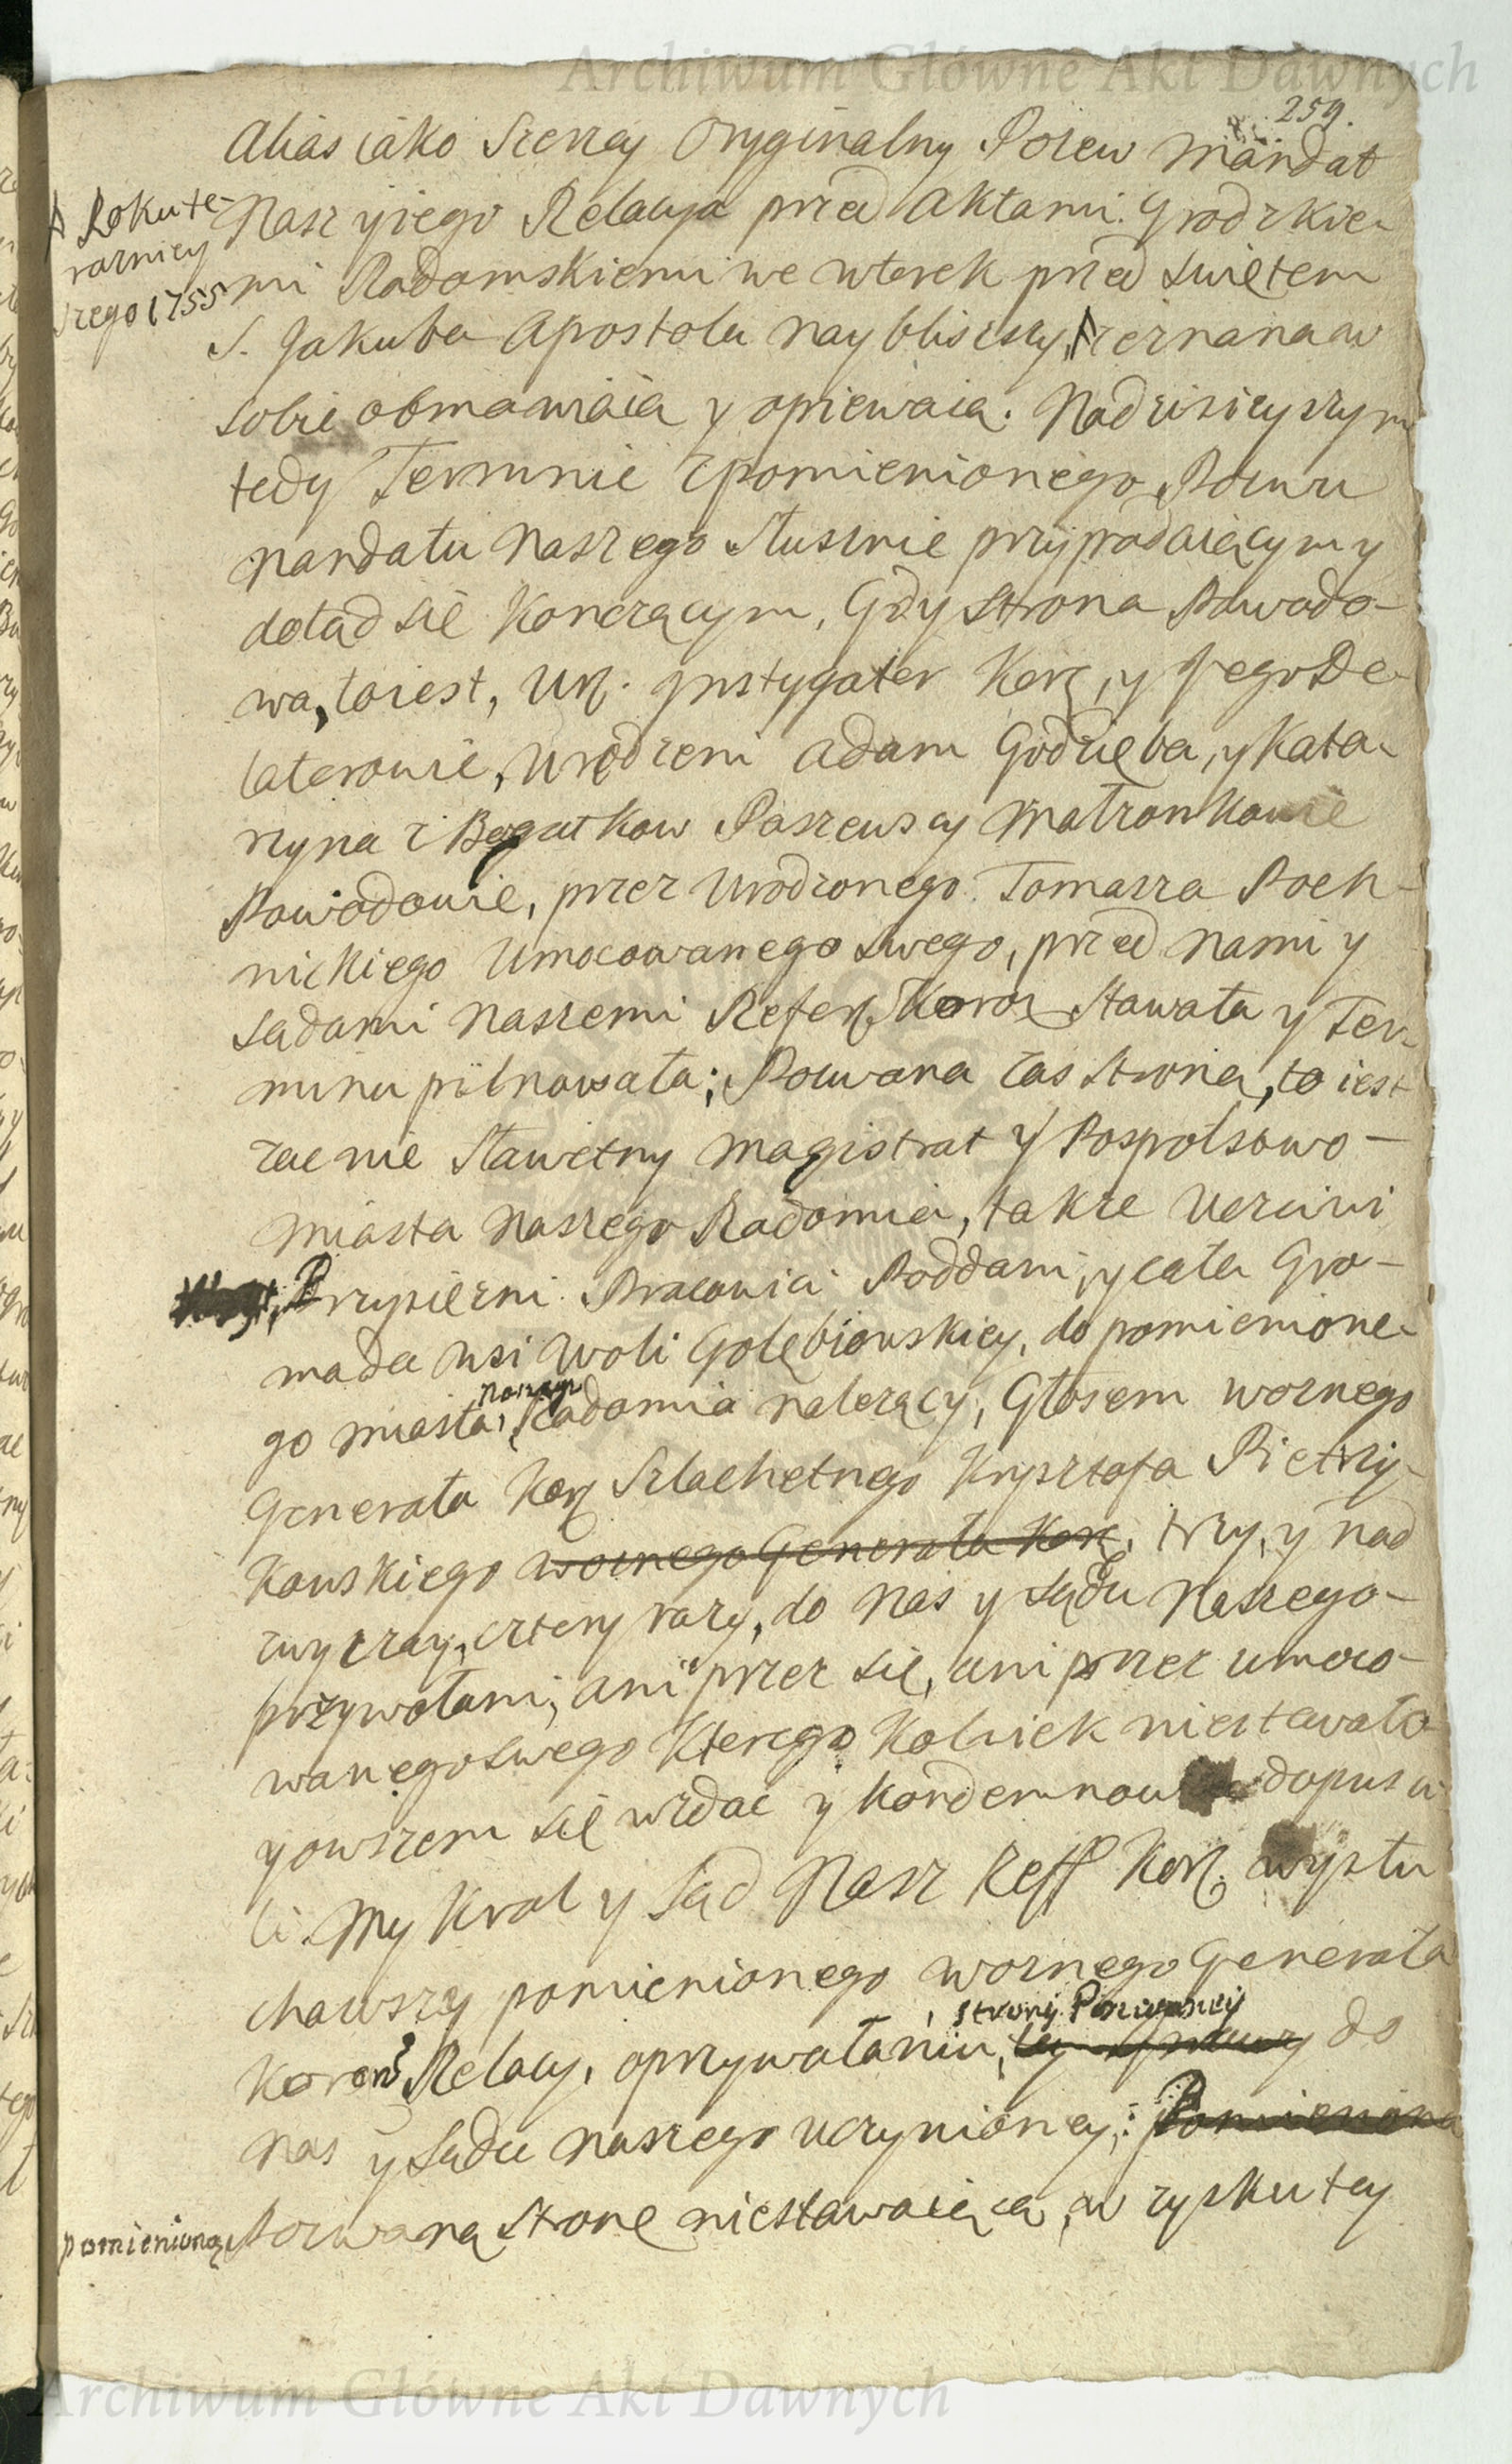 Archiwum Główne Akt Dawnych
259.
Alias iáko Szerzey Oryginalny Pozew Mandat
Nasz y iego Relacya przed Aktami Grodzkie-
mi Radomskiemi we wtorek przed swiętem
S. Jakuba Apostoła nayblisszy, zeznana w
sobie obmawiáią y opiewaią. Na dzisieyszym
tedy Terminie zpomienionego Pozwu
Mandatu Naszego słusznie przypadaiącym y
dotąd się Konczącym, Gdy strona Powodo-
wa, to iest, Ur. Instygator Kor, y Jego De-
latorowie, Urodzeni Adam Godzięba, y Kata-
rzyna z Bogutkow Paszewscy Małzonkowie
Powodowie, przez Urodzonego Tomasza Poch-
nickiego Umocowanego swego, przed Nami y
Sądami Naszemi Refer Koron stawała y Ter-
minu pilnowała; Pozwana zas strona, to iest
zacnie Sławetny Magistrat y Pospolstwo
Miasta Naszego Radomia, takze Uczciwi
Przysiezni Pracowici Poddani, y cała Gro-
mada wsi Woli Gołębiowskiey, do pomienione-
go Miasta, Naszego Radomia nalezący, Głosem woznego
Generała Kor Szlachetnego Krysztofa Pietrzy-
kowskiego woznego Generała Kor, trzy, y nad
zwyczay, cztery razy, do Nas y Sądu Naszego
przywołani, ani przez się, ani przez umoco-
wanego swego Ktorego Kolwiek niestawała
y owszem się wzdac y Kondemnowac dopusci-
li. My Krol y Sąd Nasz Reff Kor. wysłu
chawszy pomienionego woznego Generała
Koron Relacy, o przywołaniu, strony Pozwaney do
Nas y Sądu Naszego uczynioney; Pomieniona
pomienioną Pozwaną stronę niestawaiącą, w zysku tey
Rokute-
razniey
szego 1755
Archiwum Główne Akt Dawnych